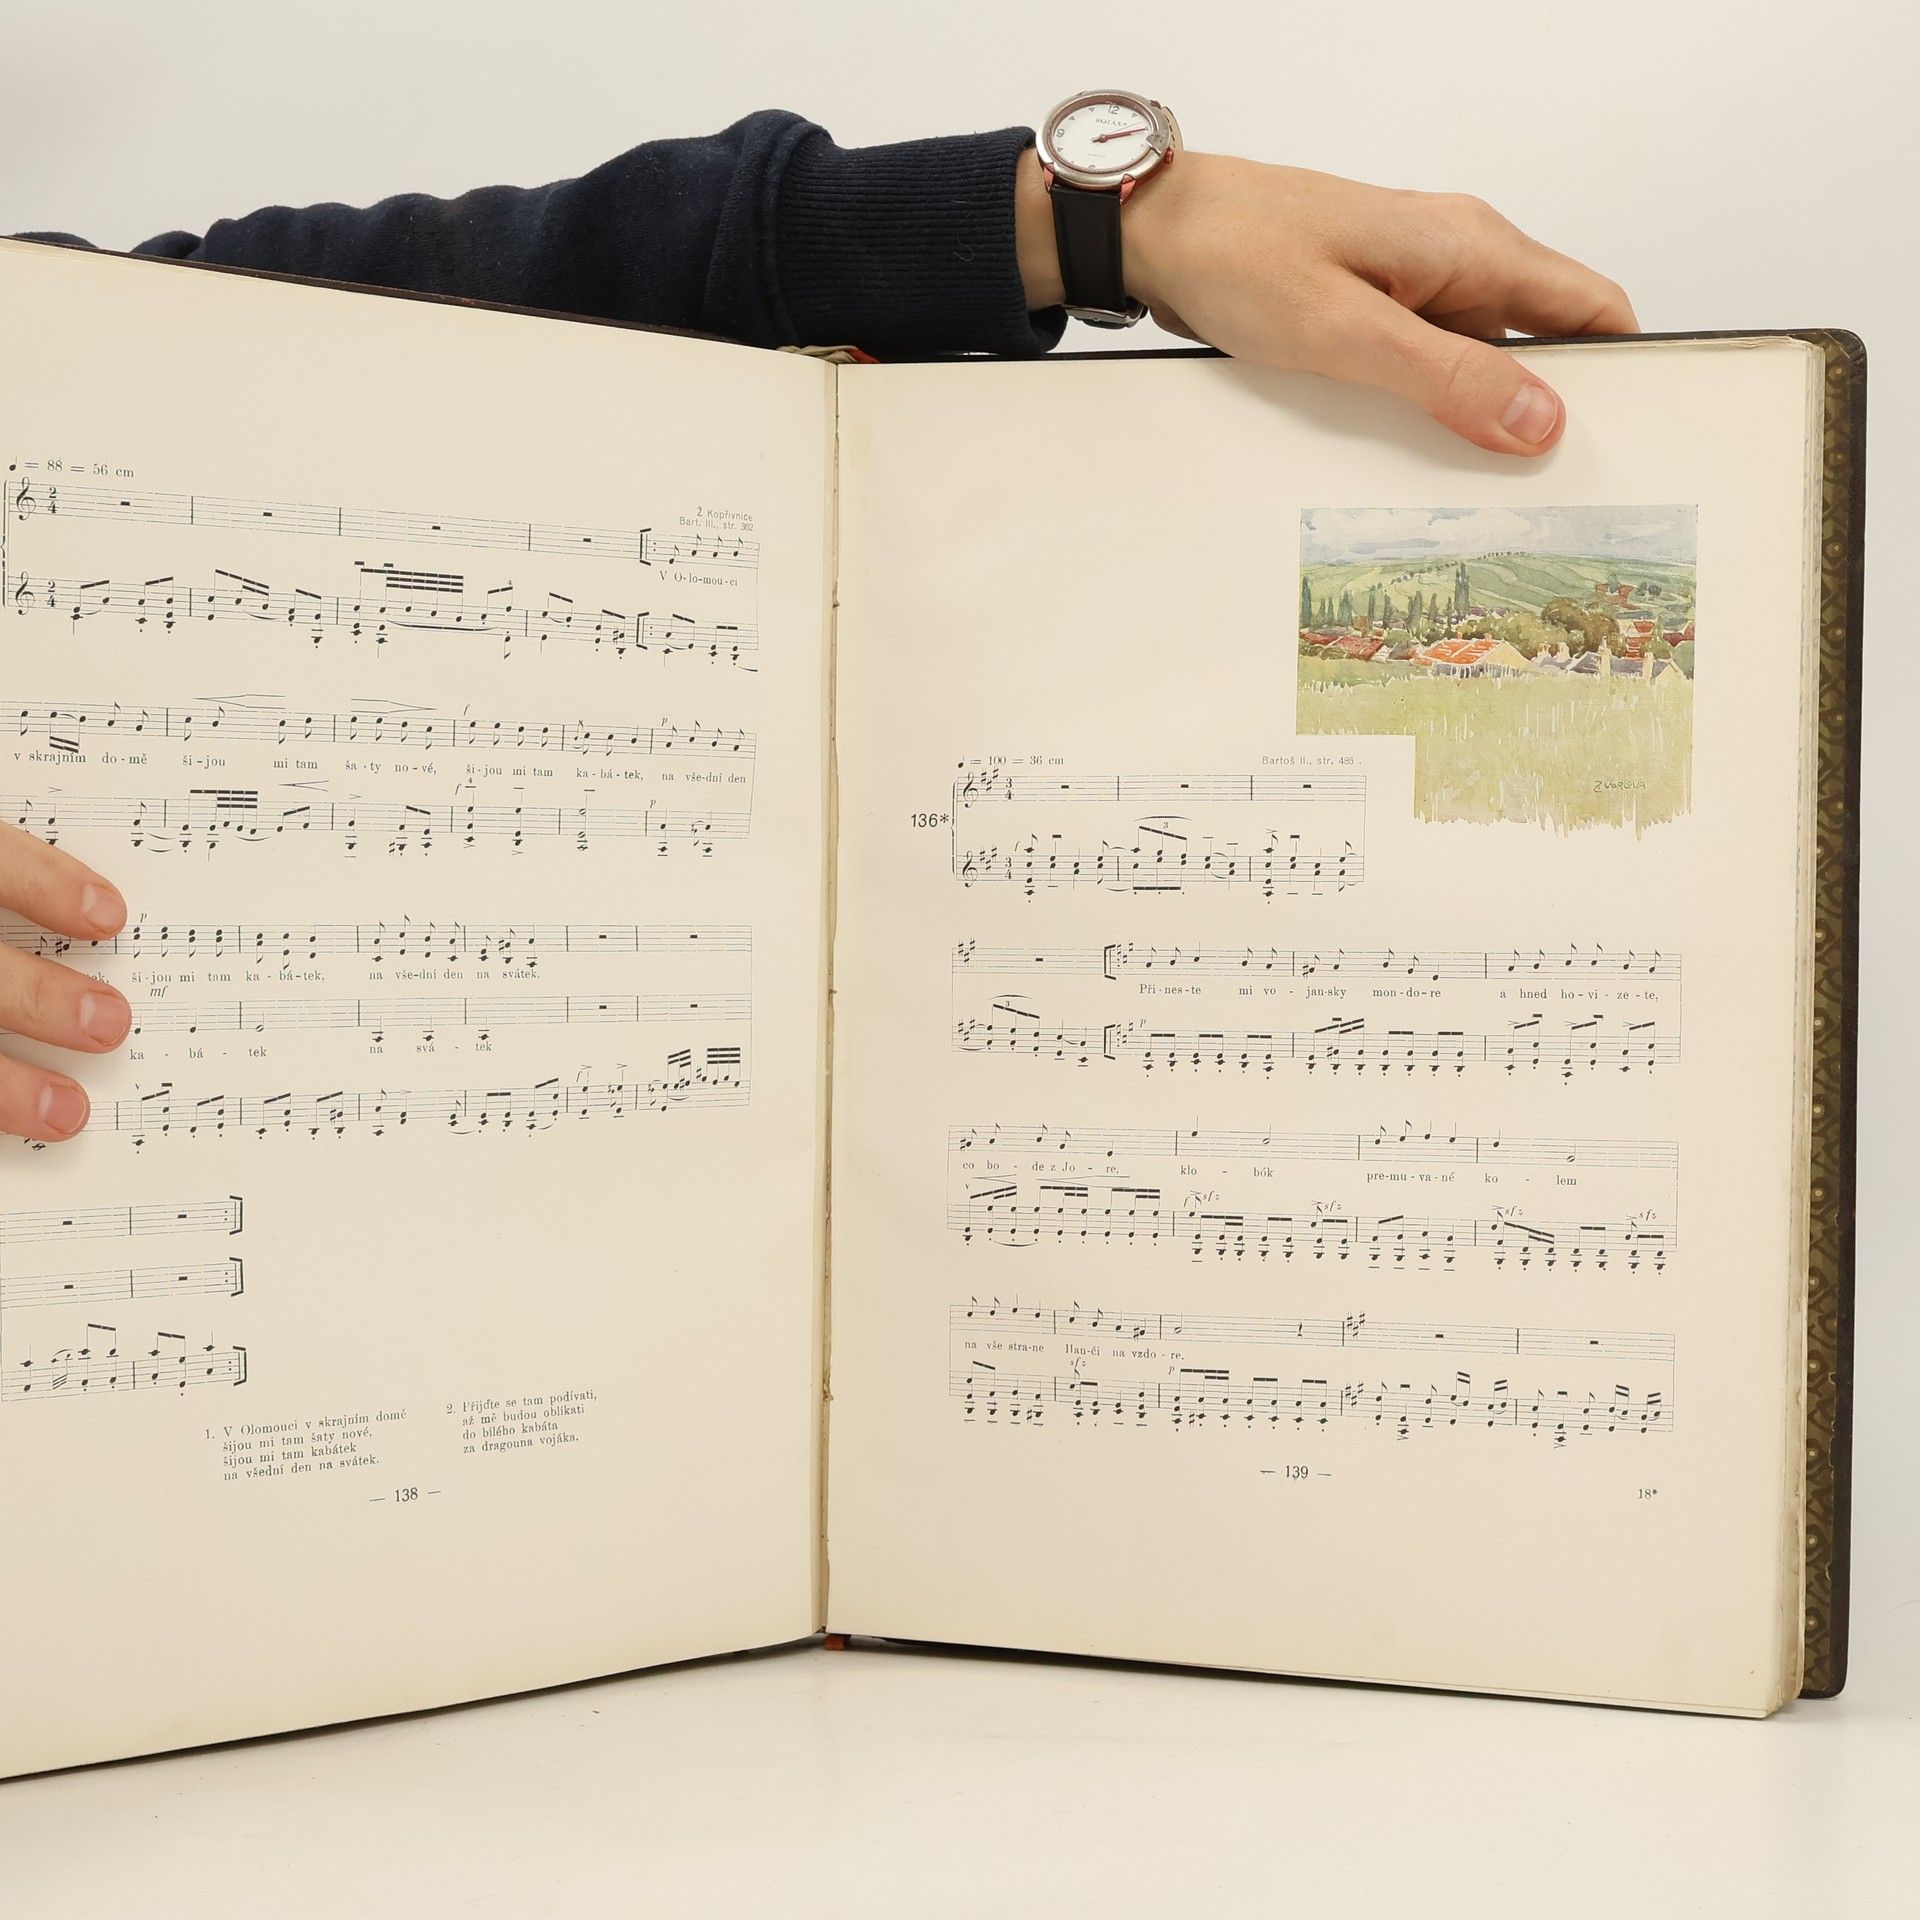 12
9
ROTAX®
♩ = 88 = 56 cm
Z Kopřivnice
Bart. III., str. 362
V O-lo-mou-ci
v skrajním do-mě ši-jou mi tam ša-ty no-vé, ši-jou mi tam ka-bá-tek, na vše-dní den
f
p
f
p
p
tek, ši-jou mi tam ka-bá-tek, na vše-dní den na svátek.
mf
ka - bá - tek na svá - tek
1. V Olomouci v skrajním domě
šijou mi tam šaty nové,
šijou mi tam kabátek
na všední den na svátek.
2. Přijďte se tam podívati,
až mě budou oblíkati
do bílého kabáta
za dragouna vojáka.
— 138 —
Z VORLOVA
♩ = 100 = 36 cm
Bartoš II., str. 486.
136*
3
3
Při-nes-te mi vo-jan-sky mon-do-re a hned ho-vi-ze-te,
p
co bo-de z Jo-re, klo-bók pre-mu-va-né ko-lem
f sfz sfz sfz sfz
na vše stra-ne Han-či na vzdo-re.
sfz p
— 139 —
18*